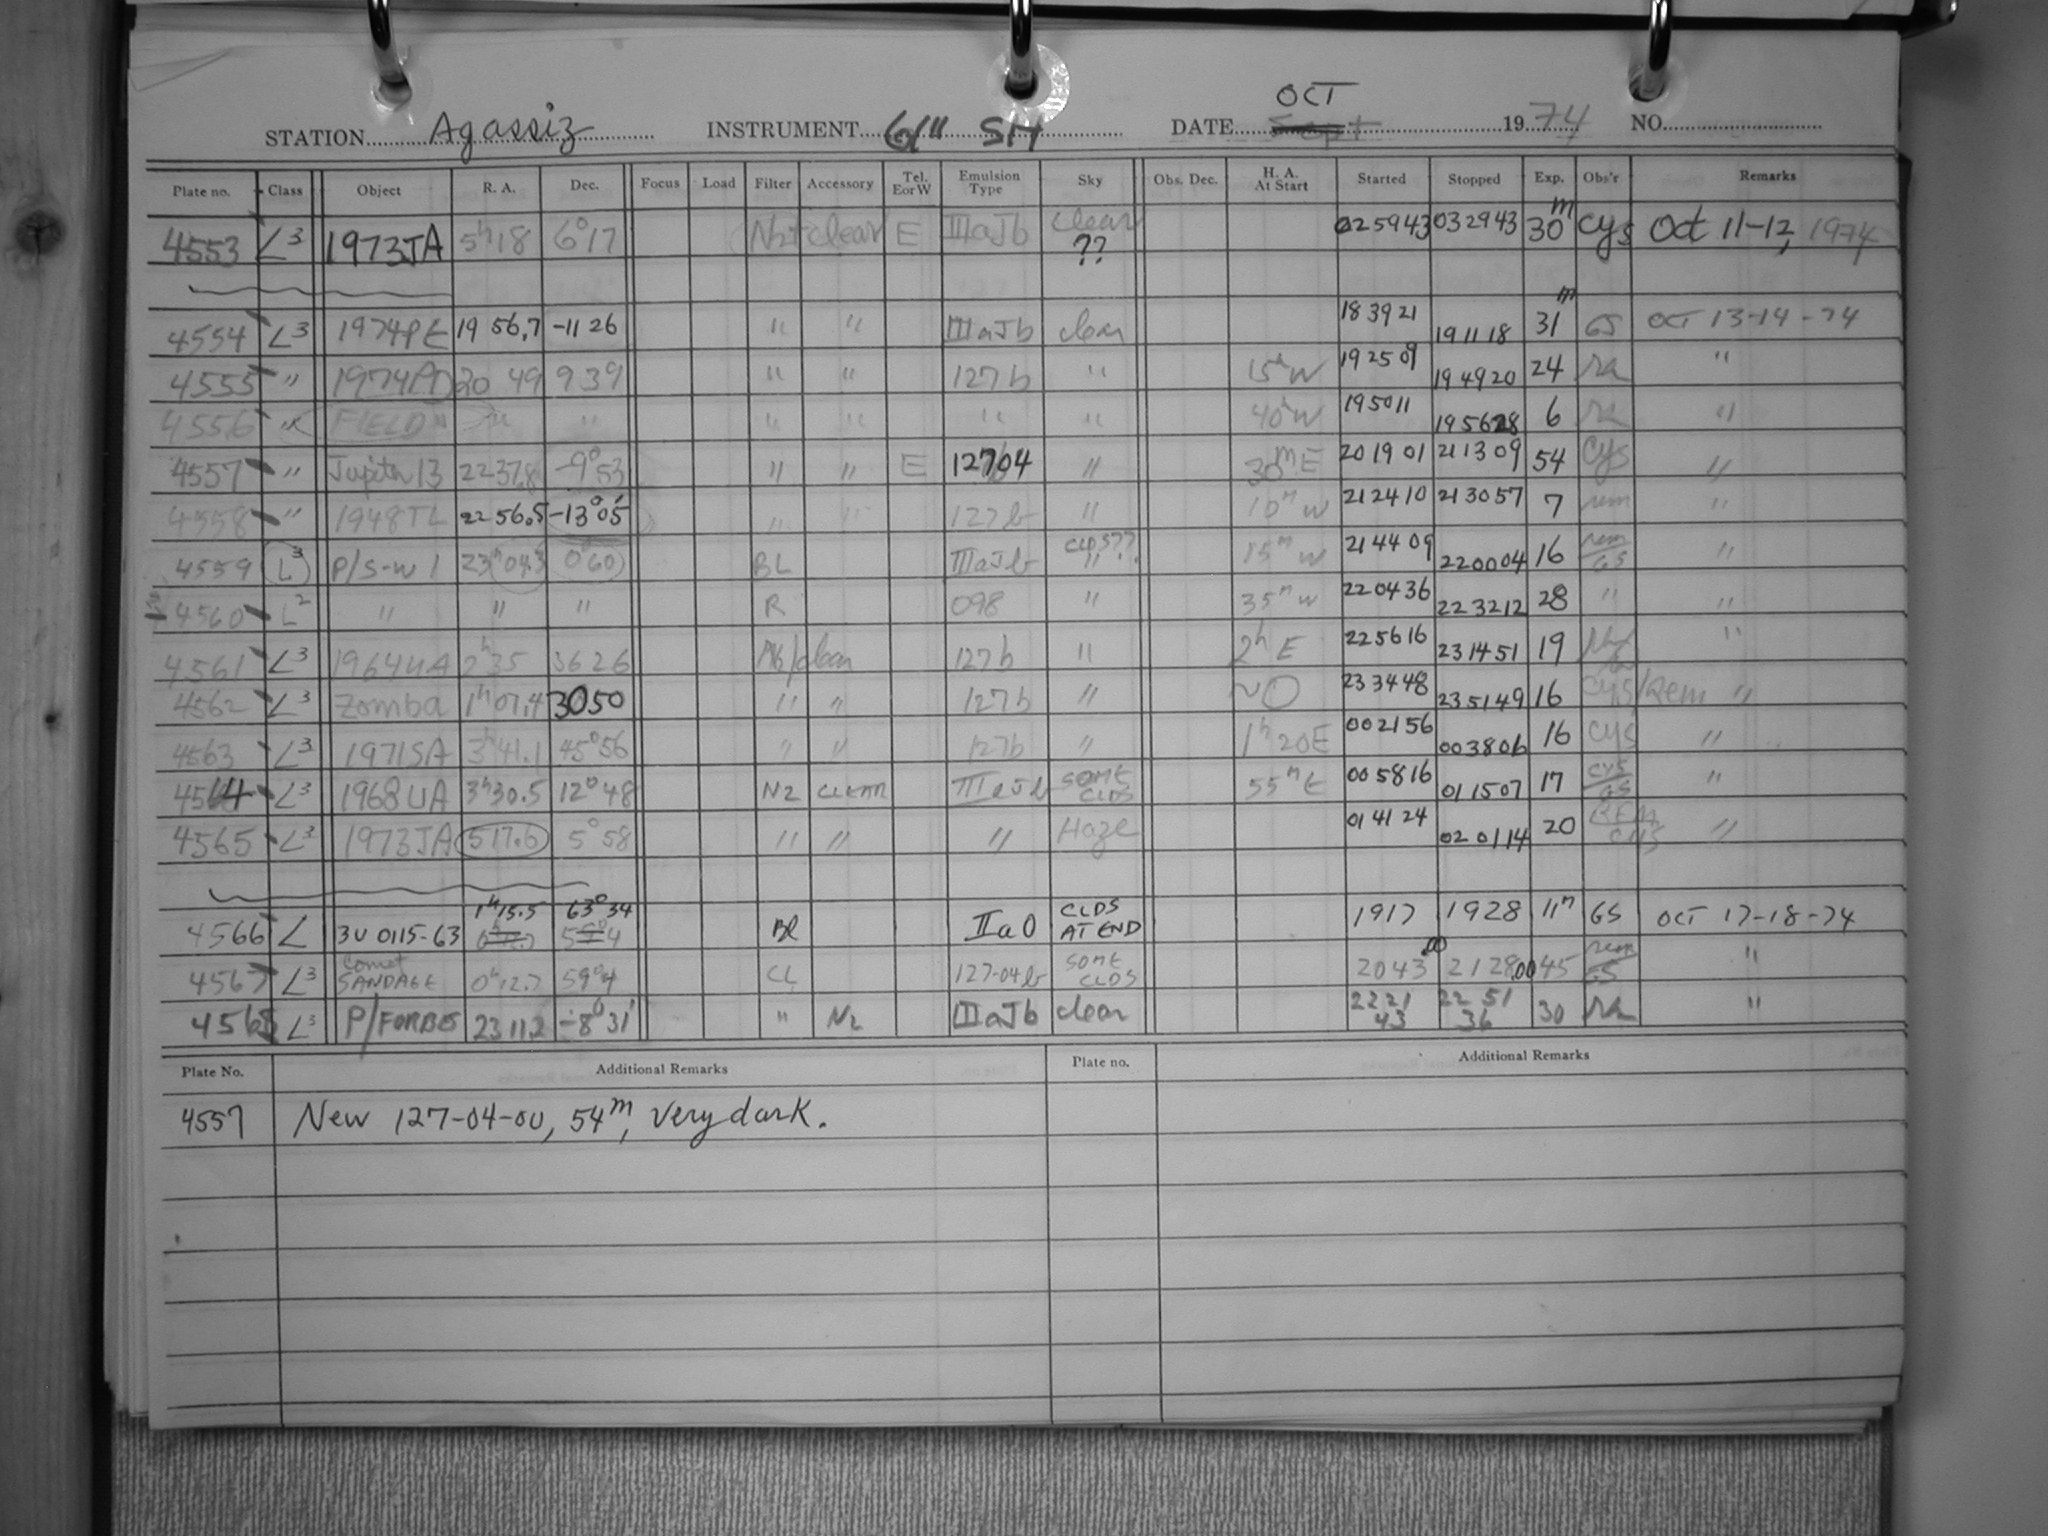 OCT
STATION Agassiz INSTRUMENT 61" SH DATE Sept 1974 NO.
Plate no. Class Object R. A. Dec. Focus Load Filter Accessory Tel. E or W Emulsion Type Sky Obs. Dec. H. A. At Start Started Stopped Exp. Obs'r Remarks
4553 L3 1973JA 5h18 6°17 clear E IIIaJb clear ?? 025943 032943 30m cys Oct 11-12, 1974
4554 L3 1974PE 19 56.7 -11 26 " " IIIaJb clear 183921 191118 31m GS OCT 13-14-74
4555 " 1974PD 20 49 9 39 " " 127b " 15m W 192509 194920 24 ra "
4556 " FIELD " " " " " " " 40m W 195011 195628 6 ra "
4557 " Jupiter 13 2237.8 -9°53 " " E 12704 " 30m E 201901 211309 54 cys "
4558 " 1948TL 22 56.5 -13°05' " " 127b " 10m W 212410 213057 7 rem "
4559 L3 P/S-W 1 23h04.3 0°60 BL IIIaJb CLDS?? " 15m W 214409 220004 16 rem/GS "
4560 L2 " " " R 098 " 35m W 220436 223212 28 " "
4561 L3 1964UA 2h35 3626 clear 127b " 2h E 225616 231451 19 "
4562 L3 Zomba 1h07.4 3050 " " 127b " ~0 233448 235149 16 cys/Rem "
4563 L3 1971SA 3h41.1 45°56 " " 127b " 1h 20E 002156 003806 16 cys "
4564 L3 1968UA 3h30.5 12°48 N2 CLEAR IIIaJb SOME CLDS 55m E 005816 011507 17 cys/GS "
4565 L3 1973JA 517.6 5°58 " " " Haze 014124 020114 20 REM/cys "
4566 L 3U 0115-63 1h15.5 63°34 Bl IIaO CLDS AT END 1917 1928 11m GS OCT 17-18-74
4567 L3 Comet SANDAGE 0h12.7 59°4 CL 127-04b SOME CLDS 2043.00 2128.00 45 rem/GS "
4568 L3 P/FORBES 23 11.2 -8°31' " N2 IIIaJb clear 2221 43 22 51 36 30 ra "
Plate No. Additional Remarks Plate no. Additional Remarks
4557 New 127-04-00, 54m, Very dark.